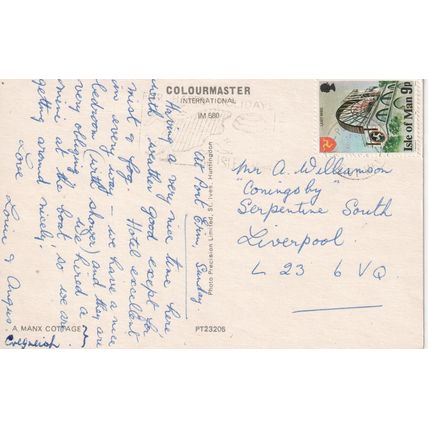 COLOURMASTER
INTERNATIONAL
IM 680
at Port Erin, Sunday.
Having a very nice time here,
with weather good except for
mist & fog. Hotel excellent
in every way – we have a nice
bedroom (with shower) and they are
very obliging. We hired a
mini at the boat so we are
getting around nicely!
Love
Lorna & Angus
A MANX COTTAGE
Cregneish
PT23206
Photo Precision Limited, St. Ives, Huntingdon
Isle of Man 9p
Mr A. Williamson
"Coningsby"
Serpentine South
Liverpool
L 23 6 VQ.